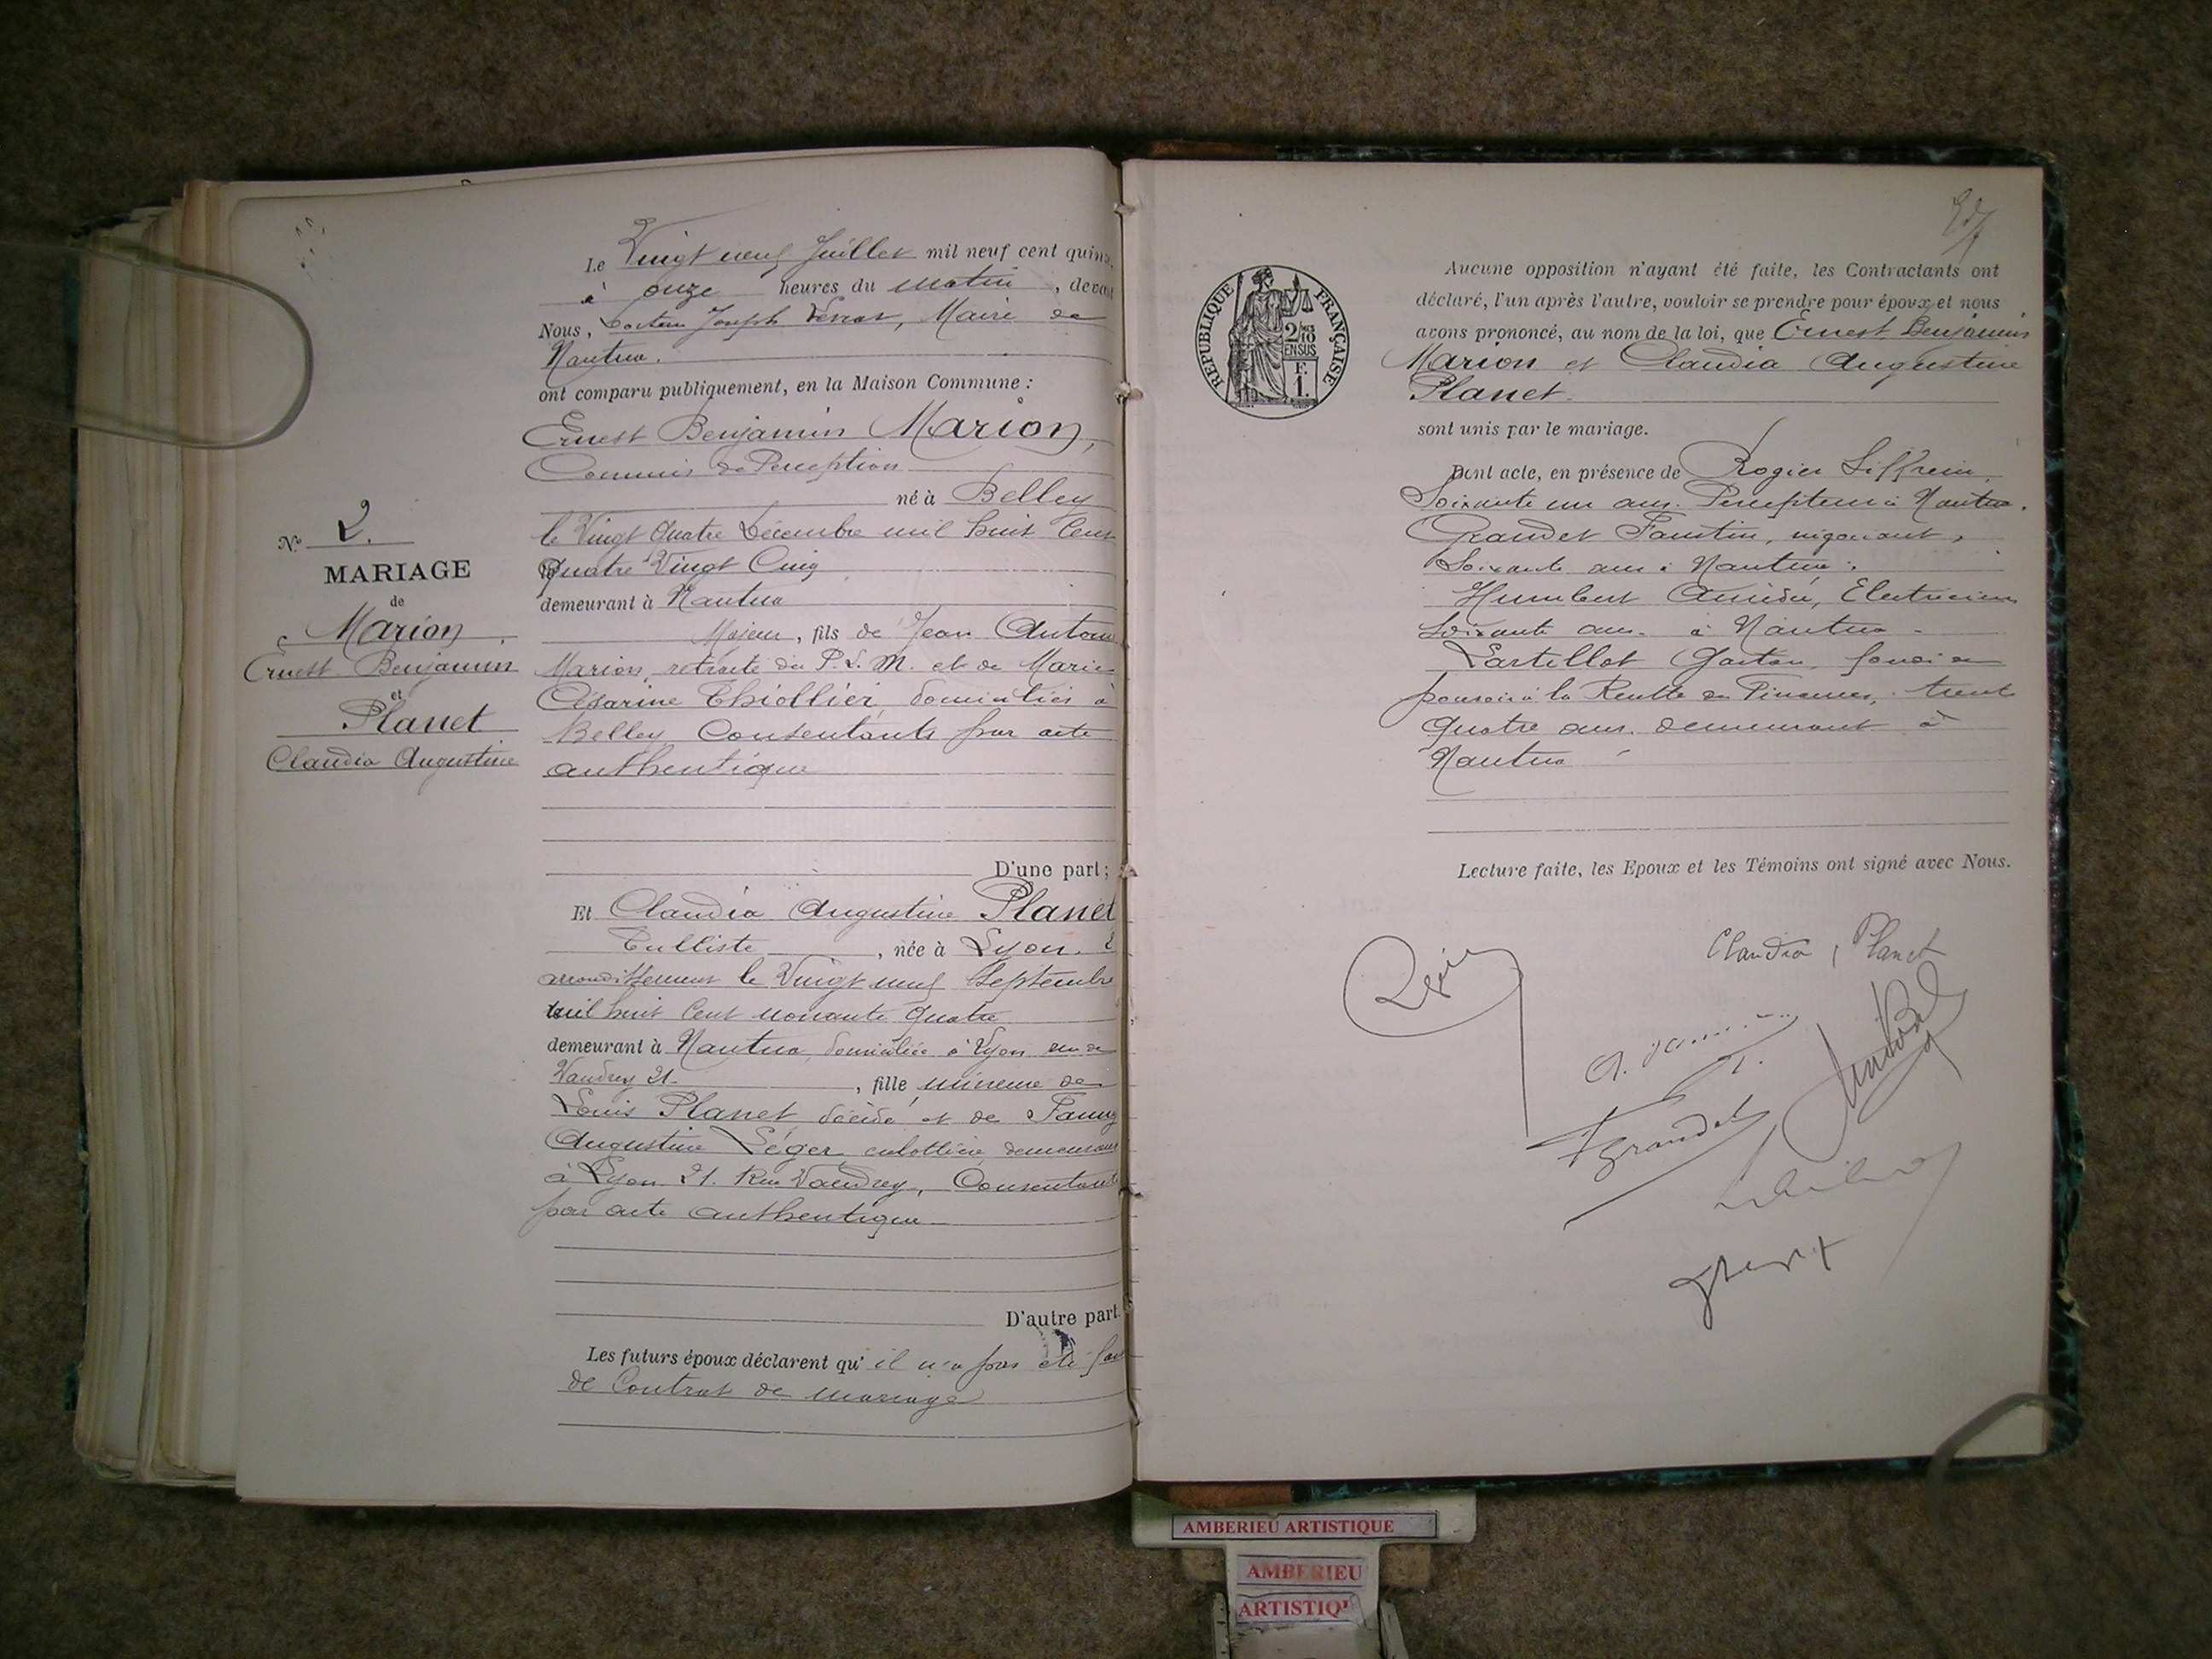 Le Vingt neuf Juillet mil neuf cent quinze
à onze heures du matin, devant
Nous, Docteur Joseph, Maire de
Nantua.
ont comparu publiquement, en la Maison Commune :
Ernest Benjamin Marion,
Commis de Perception
né à Belley
le Vingt Quatre Décembre mil huit Cent
Quatre Vingt Cinq
demeurant à Nantua
Majeur, fils de Jean Antoine
Marion, retraité du P.L.M. et de Marie
Césarine Thiollier, domiciliés à
Belley Consentants par acte
authentique
D'une part ;
N° 2.
MARIAGE
de
Marion
Ernest Benjamin
et
Planet
Claudia Augustine
Et Claudia Augustine Planet
Tulliste, née à Lyon. 2
arrondissement le Vingt neuf Septembre
mil huit Cent nonante quatre
demeurant à Nantua, domiciliée à Lyon rue de
Vaudrey 21., fille mineure de
Louis Planet, décédé, et de Fanny
Augustine Léger, culottière, demeurant
à Lyon 21. Rue Vaudrey, Consentante
par acte authentique
D'autre part.
Les futurs époux déclarent qu'il n'a pas été fait
de Contrat de mariage
RÉPUBLIQUE FRANÇAISE
2/10
EN SUS
F.
1.
Aucune opposition n'ayant été faite, les Contractants ont
déclaré, l'un après l'autre, vouloir se prendre pour époux et nous
avons prononcé, au nom de la loi, que Ernest Benjamin
Marion et Claudia Augustine
Planet.
sont unis par le mariage.
Dont acte, en présence de Rogier Siffrein
Soixante un ans. Percepteur à Nantua.
Grandet Faustin, négociant,
Soixante ans à Nantua.
Humbert Amédée, Electricien
Soixante ans. à Nantua.
Lartellot Gaston, fondé de
pouvoir à la Recette des Finances, trente
quatre ans. demeurant à
Nantua
Lecture faite, les Epoux et les Témoins ont signé avec Nous.
Claudia Planet
F Grandet
AMBERIEU ARTISTIQUE
AMBERIEU
ARTISTIQ